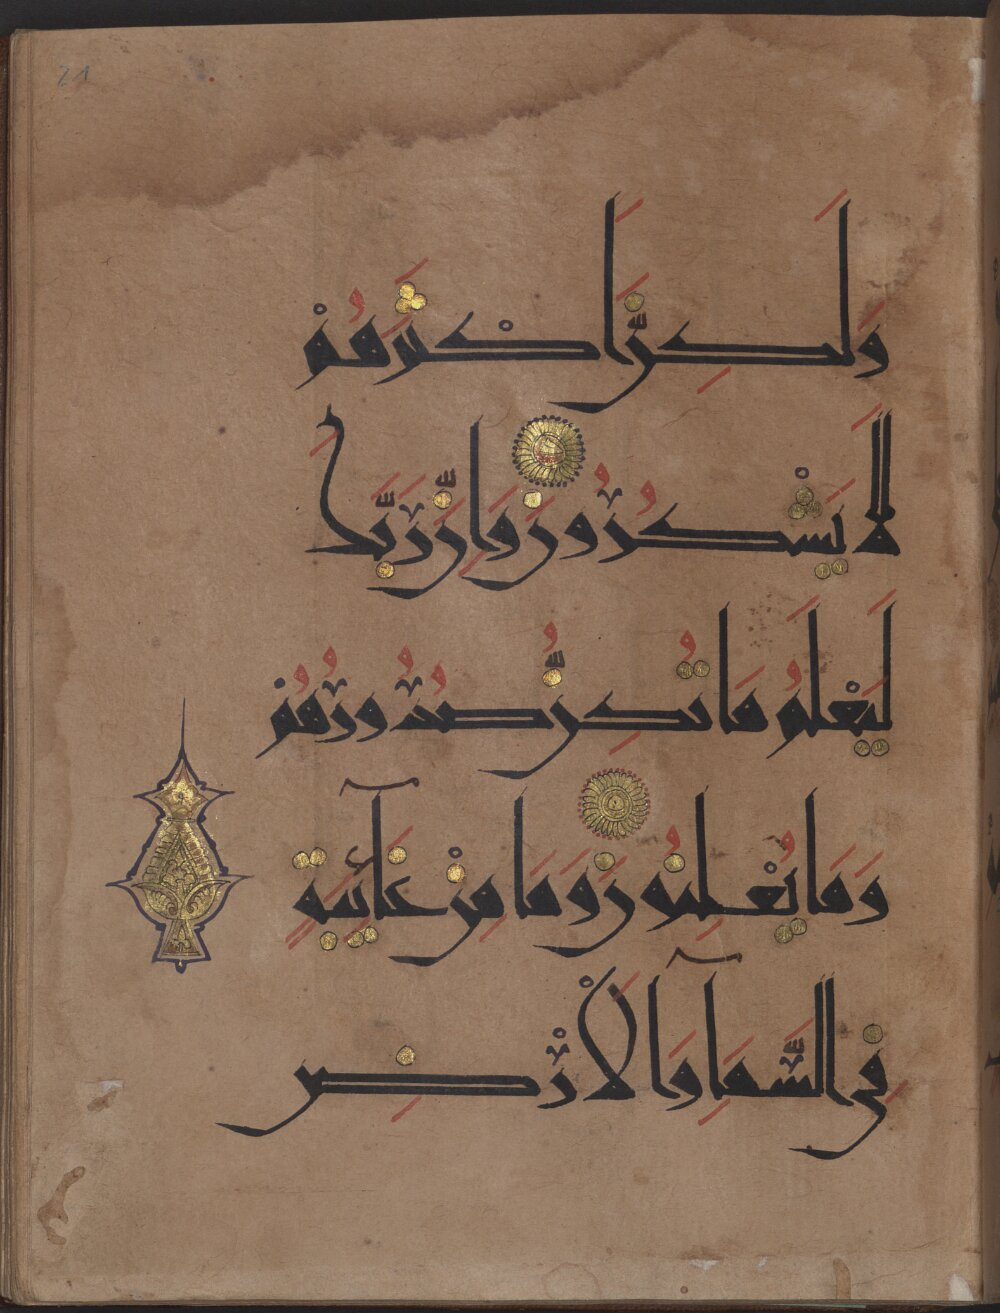 وَلَكِنَّ اَكْثَرَهُمْ
لَا يَشْكُرُونَ وَاِنَّ رَبَّكَ
لَيَعْلَمُ مَا تُكِنُّ صُدُورُهُمْ
وَمَا يُعْلِنُونَ وَمَا مِنْ غَآئِبَةٍ
فِي السَّمَآِ وَالْاَرْضِ